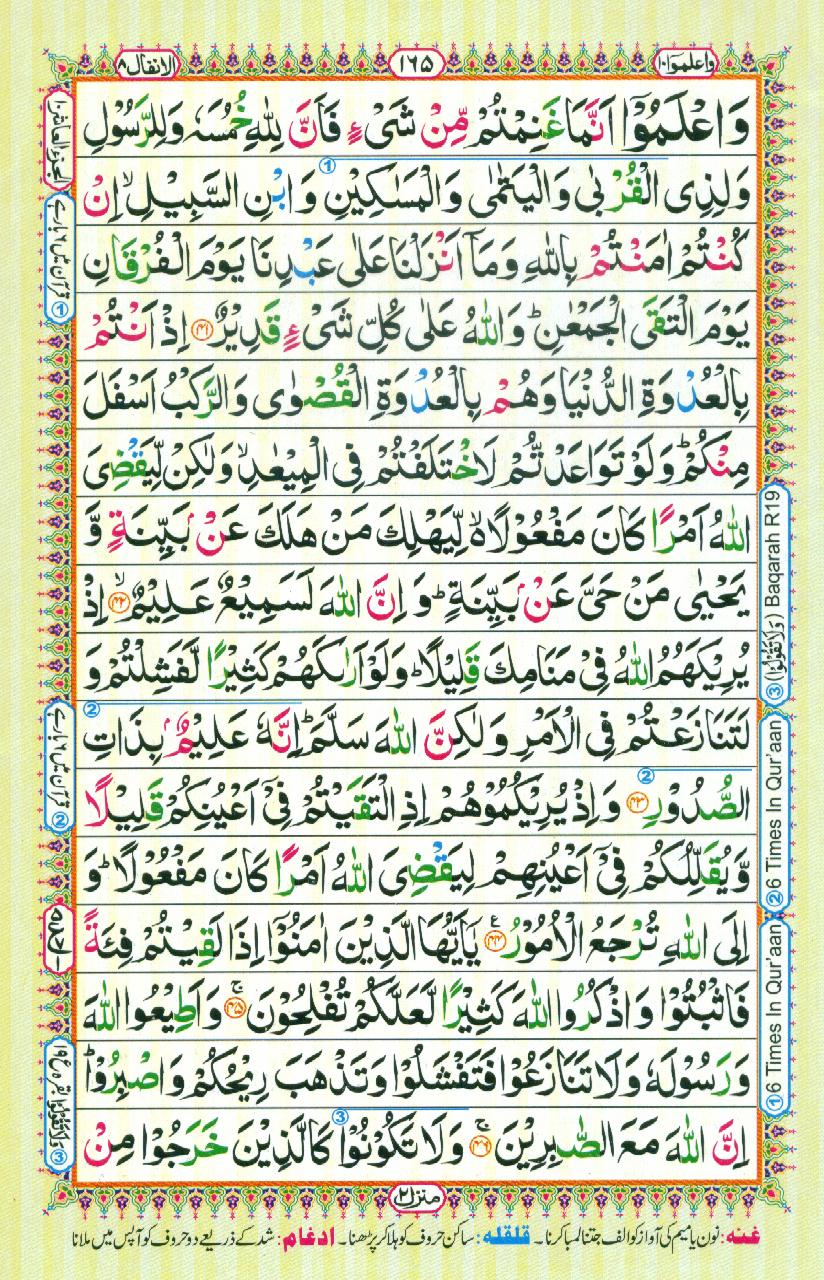 واعلموٓا ١٠
١٦٥
الانفال ٨
وَاعْلَمُوْٓا اَنَّمَا غَنِمْتُمْ مِّنْ شَیْءٍ فَاَنَّ لِلّٰهِ خُمُسَهٗ وَلِلرَّسُوْلِ
وَلِذِی الْقُرْبٰی وَالْیَتٰمٰی وَالْمَسٰكِیْنِ وَابْنِ السَّبِیْلِ ۙ اِنْ
كُنْتُمْ اٰمَنْتُمْ بِاللّٰهِ وَمَآ اَنْزَلْنَا عَلٰی عَبْدِنَا یَوْمَ الْفُرْقَانِ
یَوْمَ الْتَقَی الْجَمْعٰنِ ؕ وَاللّٰهُ عَلٰی كُلِّ شَیْءٍ قَدِیْرٌ ﴿۴۱﴾ اِذْ اَنْتُمْ
بِالْعُدْوَةِ الدُّنْیَا وَهُمْ بِالْعُدْوَةِ الْقُصْوٰی وَالرَّكْبُ اَسْفَلَ
مِنْكُمْ ؕ وَلَوْ تَوَاعَدْتُّمْ لَاخْتَلَفْتُمْ فِی الْمِیْعٰدِ ۙ وَلٰكِنْ لِّیَقْضِیَ
اللّٰهُ اَمْرًا كَانَ مَفْعُوْلًا ۙ۬ لِّیَهْلِكَ مَنْ هَلَكَ عَنْۢ بَیِّنَةٍ وَّ
یَحْیٰی مَنْ حَیَّ عَنْۢ بَیِّنَةٍ ؕ وَ اِنَّ اللّٰهَ لَسَمِیْعٌ عَلِیْمٌ ﴿ۙ۴۲﴾ اِذْ
یُرِیْكَهُمُ اللّٰهُ فِیْ مَنَامِكَ قَلِیْلًا ؕ وَلَوْ اَرٰىكَهُمْ كَثِیْرًا لَّفَشِلْتُمْ وَ
لَتَنَازَعْتُمْ فِی الْاَمْرِ وَلٰكِنَّ اللّٰهَ سَلَّمَ ؕ اِنَّهٗ عَلِیْمٌۢ بِذَاتِ
الصُّدُوْرِ ﴿۴۳﴾ وَاِذْ یُرِیْكُمُوْهُمْ اِذِ الْتَقَیْتُمْ فِیْٓ اَعْیُنِكُمْ قَلِیْلًا
وَّیُقَلِّلُكُمْ فِیْٓ اَعْیُنِهِمْ لِیَقْضِیَ اللّٰهُ اَمْرًا كَانَ مَفْعُوْلًا ؕ وَ
اِلَی اللّٰهِ تُرْجَعُ الْاُمُوْرُ ﴿۴۴﴾ یٰۤاَیُّهَا الَّذِیْنَ اٰمَنُوْٓا اِذَا لَقِیْتُمْ فِئَةً
فَاثْبُتُوْا وَاذْكُرُوا اللّٰهَ كَثِیْرًا لَّعَلَّكُمْ تُفْلِحُوْنَ ﴿ۚ۴۵﴾ وَاَطِیْعُوا اللّٰهَ
وَرَسُوْلَهٗ وَلَا تَنَازَعُوْا فَتَفْشَلُوْا وَتَذْهَبَ رِیْحُكُمْ وَاصْبِرُوْا ؕ
اِنَّ اللّٰهَ مَعَ الصّٰبِرِیْنَ ﴿ۚ۴۶﴾ وَلَا تَكُوْنُوْا كَالَّذِیْنَ خَرَجُوْا مِنْ
③ (وَلَا تَقُوْلُوْا) Baqarah R19
② 6 Times In Qur'aan
① 6 Times In Qur'aan
الجزء العاشر ١٠
قرآن میں ۶ بار ہے ①
قرآن میں ۶ بار ہے ②
منزل ٢
غنه: نون یا میم کی آواز کو الف جتنا لمبا کرنا۔ قلقله: ساکن حروف کو ہلا کر پڑھنا۔ ادغام: شد کے ذریعے دو حروف کو آپس میں ملانا